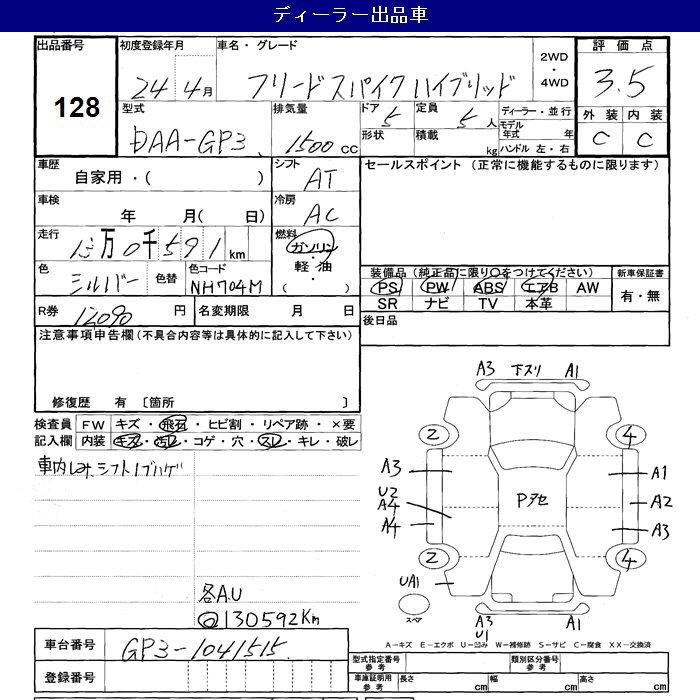 ディーラー出品車
出品番号 初度登録年月 車名・グレード 2WD・4WD 評価点
128 24年4月 フリードスパイクハイブリッド 3.5
型式 排気量 ドア 定員 ディーラー・並行 外装 内装
DAA-GP3 1500cc 5 5人 モデル年式 年 C C
形状 積載 kg ハンドル 左・右
車歴 シフト セールスポイント (正常に機能するものに限ります)
自家用・( ) AT
車検 冷房
年 月( 日) AC
走行 燃料
13万0千591km ガソリン・軽油・( )
色 色替 色コード 装備品(純正品に限り○をつけてください) 新車保証書
シルバー NH704M PS PW ABS エアB AW 有・無
SR ナビ TV 本革
R券 円 名変期限 月 日 後日品
12090
注意事項申告欄(不具合内容等は具体的に記入して下さい)
修復歴 有 〔箇所 〕
検査員記入欄 FW キズ・飛石・ヒビ割・リペア跡・×要
内装 キズ・汚レ・コゲ・穴・スレ・キレ・破レ
車内しみ、シフトノブハゲ
各A.U
@130592Km
A3 下スリ A1
2 4
A3 A1
U2 A2
A4 Pタセ
A4 A3
2 4
UA1
スペア
A3 A1
U1
A-キズ E-エクボ U-凹み W-補修跡 S-サビ C-腐食 XX-交換済
車台番号 GP3-1041515 型式指定番号 参考 類別区分番号 参考
登録番号 車庫証明用 参考 長さ cm 幅 cm 高さ cm